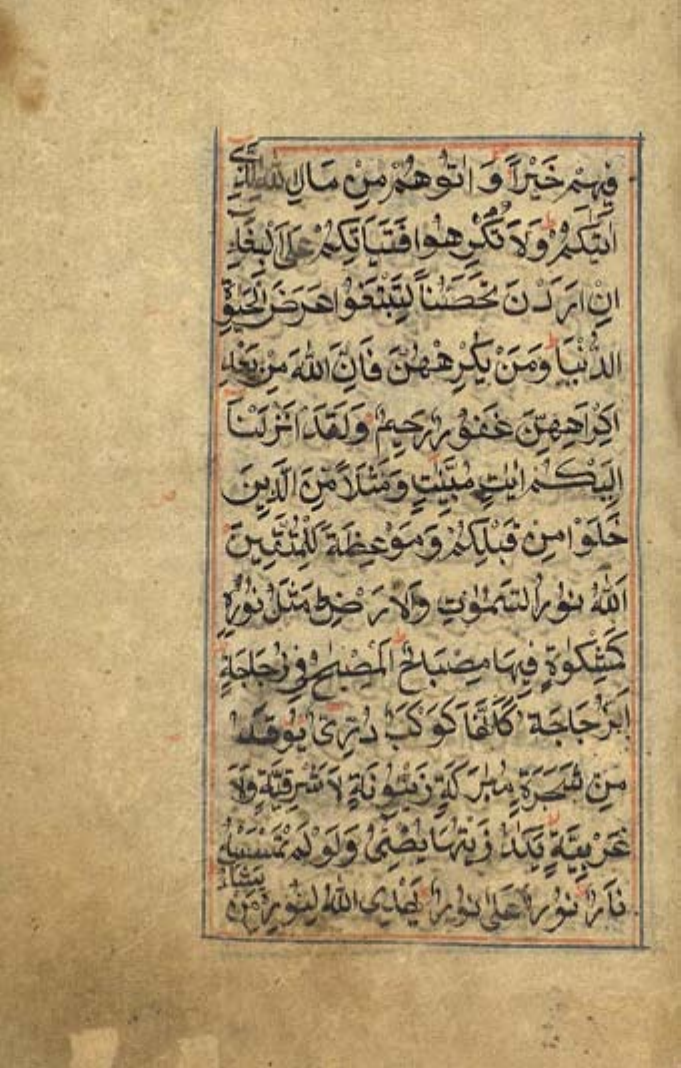 فِيهِمْ خَيْرًا وَ اٰتُوهُمْ مِنْ مَالِ اللهِ الَّذِي
اٰتٰيكُمْ وَلَا تُكْرِهُوا فَتَيَاتِكُمْ عَلَى الْبِغَاءِ
اِنْ اَرَدْنَ تَحَصُّنًا لِتَبْتَغُوا عَرَضَ الْحَيٰوةِ
الدُّنْيَا وَمَنْ يُكْرِهْهُنَّ فَاِنَّ اللهَ مِنْ بَعْدِ
اِكْرَاهِهِنَّ غَفُورٌ رَحِيمٌ وَلَقَدْ اَنْزَلْنَا
اِلَيْكُمْ اٰيٰتٍ مُبَيِّنٰتٍ وَمَثَلًا مِنَ الَّذِينَ
خَلَوْا مِنْ قَبْلِكُمْ وَمَوْعِظَةً لِلْمُتَّقِينَ
اَللهُ نُورُ السَّمٰوٰتِ وَالْاَرْضِ مَثَلُ نُورِهِ
كَمِشْكٰوةٍ فِيهَا مِصْبَاحٌ اَلْمِصْبَاحُ فِي زُجَاجَةٍ
اَلزُّجَاجَةُ كَاَنَّهَا كَوْكَبٌ دُرِّيٌّ يُوقَدُ
مِنْ شَجَرَةٍ مُبٰرَكَةٍ زَيْتُونَةٍ لَا شَرْقِيَّةٍ وَلَا
غَرْبِيَّةٍ يَكَادُ زَيْتُهَا يُضِيءُ وَلَوْ لَمْ تَمْسَسْهُ
نَارٌ نُورٌ عَلَى نُورٍ يَهْدِي اللهُ لِنُورِهِ مَنْ يَشَاءُ